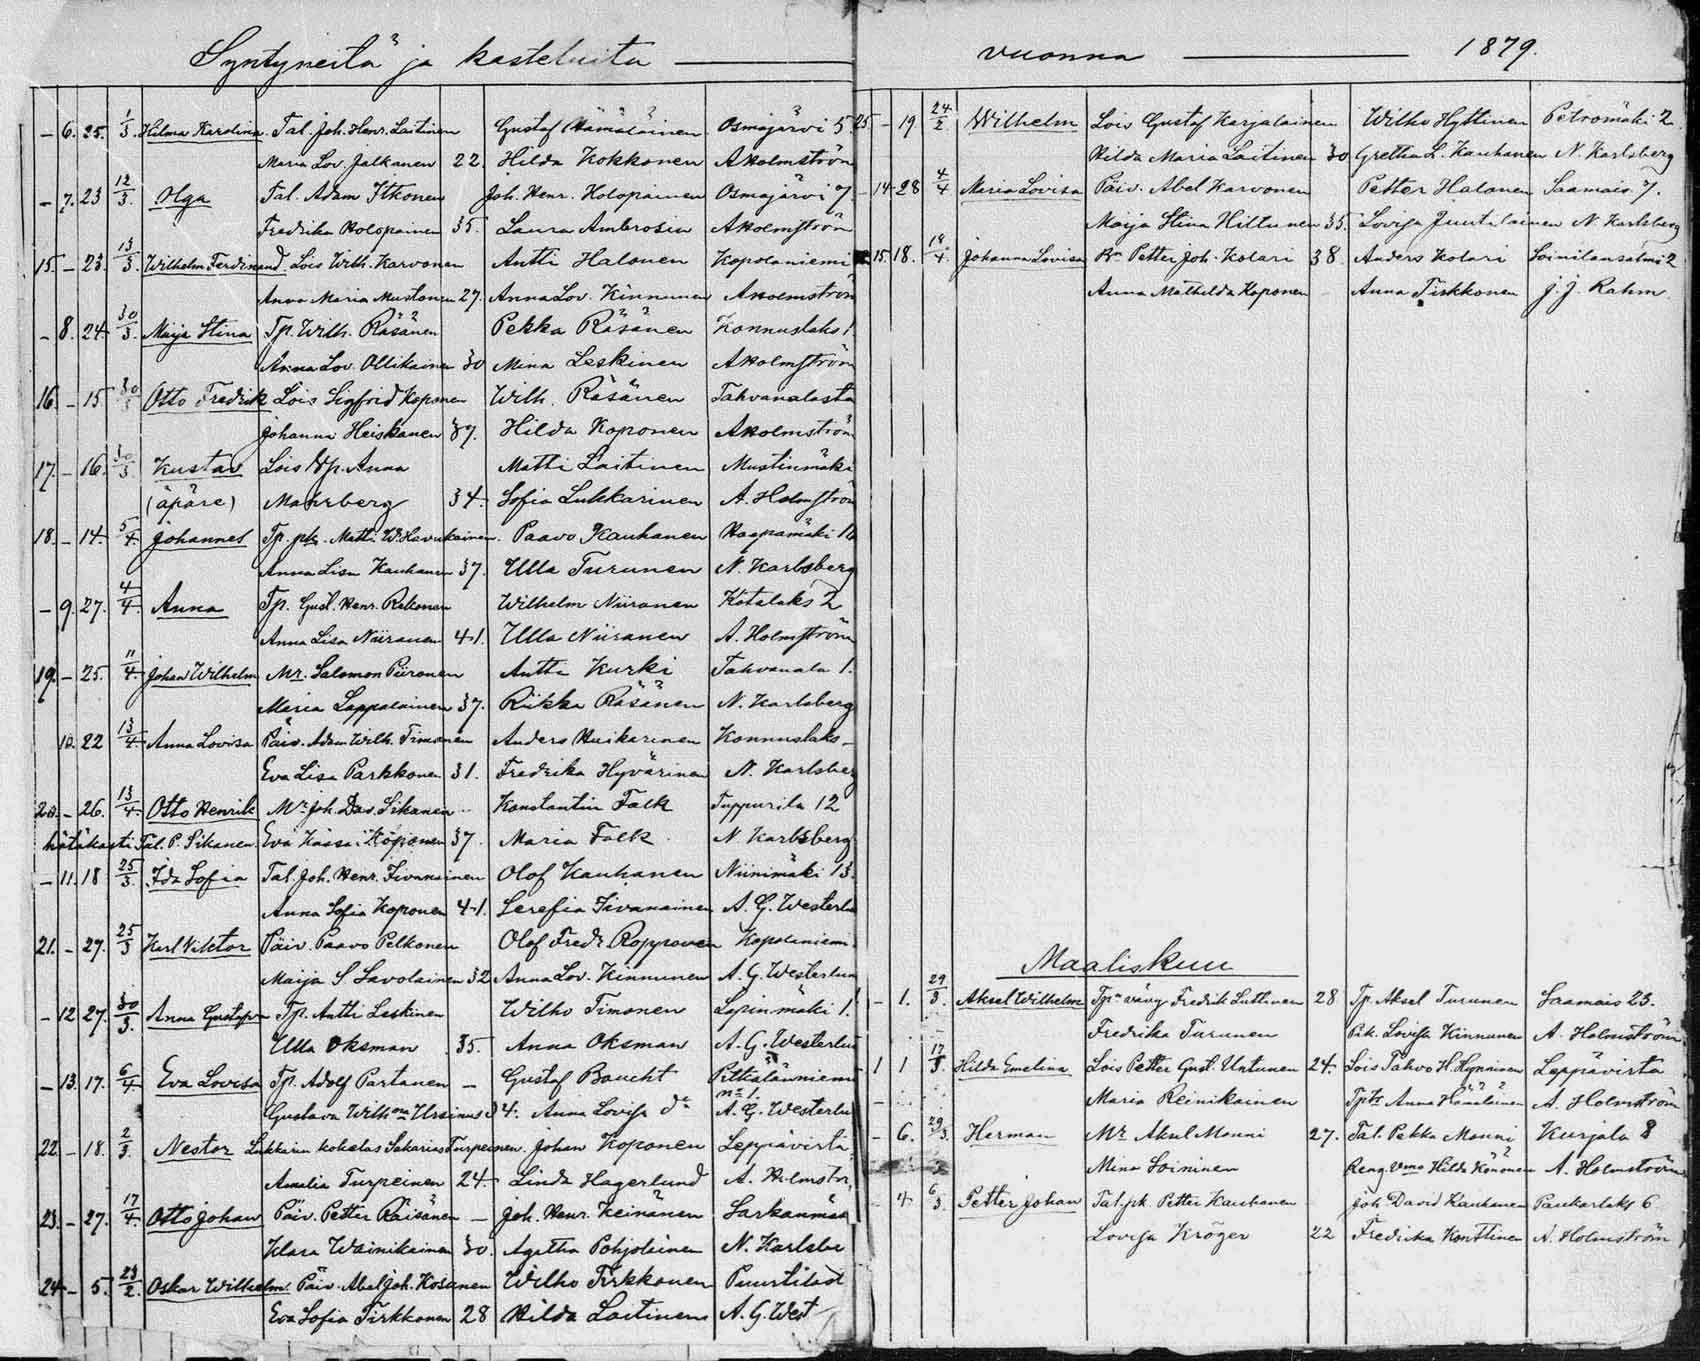 Syntyneitä ja kasteluita
- 6. 25. 1/3. Hilma Karolina. Tal. Joh. Henr. Laitinen Gustaf Hämäläinen Osmajärvi 5
Maria Lov. Jalkanen 22. Hilda Kokkonen A Holmström
- 7. 23 12/3. Olga Tal. Adam Itkonen Joh. Henr. Holopainen Osmajärvi 7
Fredrika Holopainen 35. Laura Ambrosia A Holmström
15. - 23. 13/3. Wilhelm Ferdinand. Lois Wilh. Karvonen Antti Halonen Koposaniemi
Anna Maria Mustonen 27. Anna Lov. Kinnunen A Holmström
- 8. 24. 30/3. Maija Stina Tp. Wilh. Räsänen Pekka Räsänen Konnuslaks 1.
Anna Lov. Ollikainen 30 Mina Leskinen A Holmström
16. - 15 30/3 Otto Fredrik Lois Sigfrid Koponen Wilh. Räsänen Tahvanalasta
Johanna Heiskanen 37. Hilda Koponen A Holmström
17. - 16. 30/3. Kustav Lois Anna Matti Laitinen Mustinmäki
(äpäre) Mahrberg 34. Sofia Lukkarinen A. Holmström
18. - 14. 5/4. Johannes Tp. Matti W. Havukainen. Paavo Kauhanen Haapamäki
Anna Lisa Kauhanen 37. Ulla Turunen N. Karlsberg
- 9. 27. 4/4. Anna Tp. Gust. Henr. Rekonen Wilhelm Niiranen Kotalaks 2
Anna Lisa Niiranen 41. Ulla Niiranen A. Holmström
19. - 25. 11/4. Johan Wilhelm Mr. Salomon Piironen Antti Kurki Tahvanala 1.
Maria Lappalainen 37. Riikka Räsänen N. Karlsberg
10. 22 13/4. Anna Lovisa Päiv. Adam Wilh. Timonen Anders Huikarinen Konnuslaks
Eva Lisa Parkkonen 31. Fredrika Hyvärinen N. Karlsberg
20. - 26. 13/4. Otto Henrik Mr. Joh. Dav. Sikanen Konstantin Falk Tuppurila 12
hätäkasti Tal. P. Sikanen Eva Kaisa Koponen 37. Maria Falk N Karlsberg
- 11. 18 25/3. Ida Sofia Tal. Joh. Henr. Tivanainen Olof Kauhanen Niinimäki 13.
Anna Sofia Koponen 41. Serefia Tivanainen A. G. Westerlu
21. - 27. 25/3 Karl Viktor Päiv. Paavo Pelkonen Olof Fredr. Ropponen Koposaniemi
Maija S Savolainen 32 Anna Lov. Kinnunen A. G. Westerlun
- 12 27. 30/3. Anna Gustava Tp. Antti Leskinen Wilho Timonen Lepinmäki 1.
Ulla Oksman 35. Anna Oksman A. G. Westerlu
- 13. 17. 6/4. Eva Lovisa Tp. Adolf Partanen - Gustaf Baucht Pitkälänniemi
no 1.
Gustava Wilhma Ursinus 34. Anna Lovisa do A. G. Westerlu
22. - 18. 2/3. Nestor Lukkarin kokelas Sakarias Turpeinen. Johan Koponen Leppävirta
Amalia Turpeinen 24 Linda Hagerlund A. Holmstr.
23. - 27. 17/4. Otto Johan Päiv. Petter Räisänen - Joh. Henr. Keinänen Sarkanmäk
Klara Wainikainen 30. Agatha Pohjolainen N. Karlsbe
24 - 5. 23/2. Oskar Wilhelm. Päiv. Abel Joh. Kosunen Wilho Tirkkonen Puurtilast
Eva Sofia Tirkkonen 28 Hilda Laitinen A. G. West
vuonna 1879.
25 - 19 24/2 Wilhelm Lois Gustaf Karjalainen Wilho Hyttinen Petromäki 2.
Hilda Maria Laitinen 30 Gretha L. Kauhanen N. Karlsberg
- 14 28 4/4 Maria Lovisa Päiv. Abel Karvonen Petter Halonen Saamais 7.
Maija Stina Hiltunen 35. Lovisa Juutilainen N. Karlsberg
15. 18. 14/4. Johanna Lovisa Rn Petter Joh. Kolari 38. Anders Kolari Soinilansalmi 2
Anna Mathilda Koponen - Anna Tirkkonen J. J. Rahm.
Maaliskuu
- 1. 29/3. Aksel Wilhelm Tpn vävy Fredrik Luttinen 28 Tp. Aksel Turunen Saamais 23.
Fredrika Turunen Pik. Lovisa Kinnunen A. Holmström
- 1 1 17/3. Hilda Emelina Lois Petter Gust. Untunen 24. Lois Tahvo H. Hynninen Leppävirta
Maria Reinikainen Anna Hämäläinen A. Holmström
- 6. 29/3. Herman Mr. Aksel Monni 27. Tal. Pekka Monni Kurjala 8
Mina Soininen Reng. Vmo Hilda Könönen A. Holmström
- 4 6/3 Petter Johan Tal.pk. Petter Kauhanen Joh. David Kauhanen Paukarlaks 6
Lovisa Kröger 22 Fredrika Konttinen A. Holmström